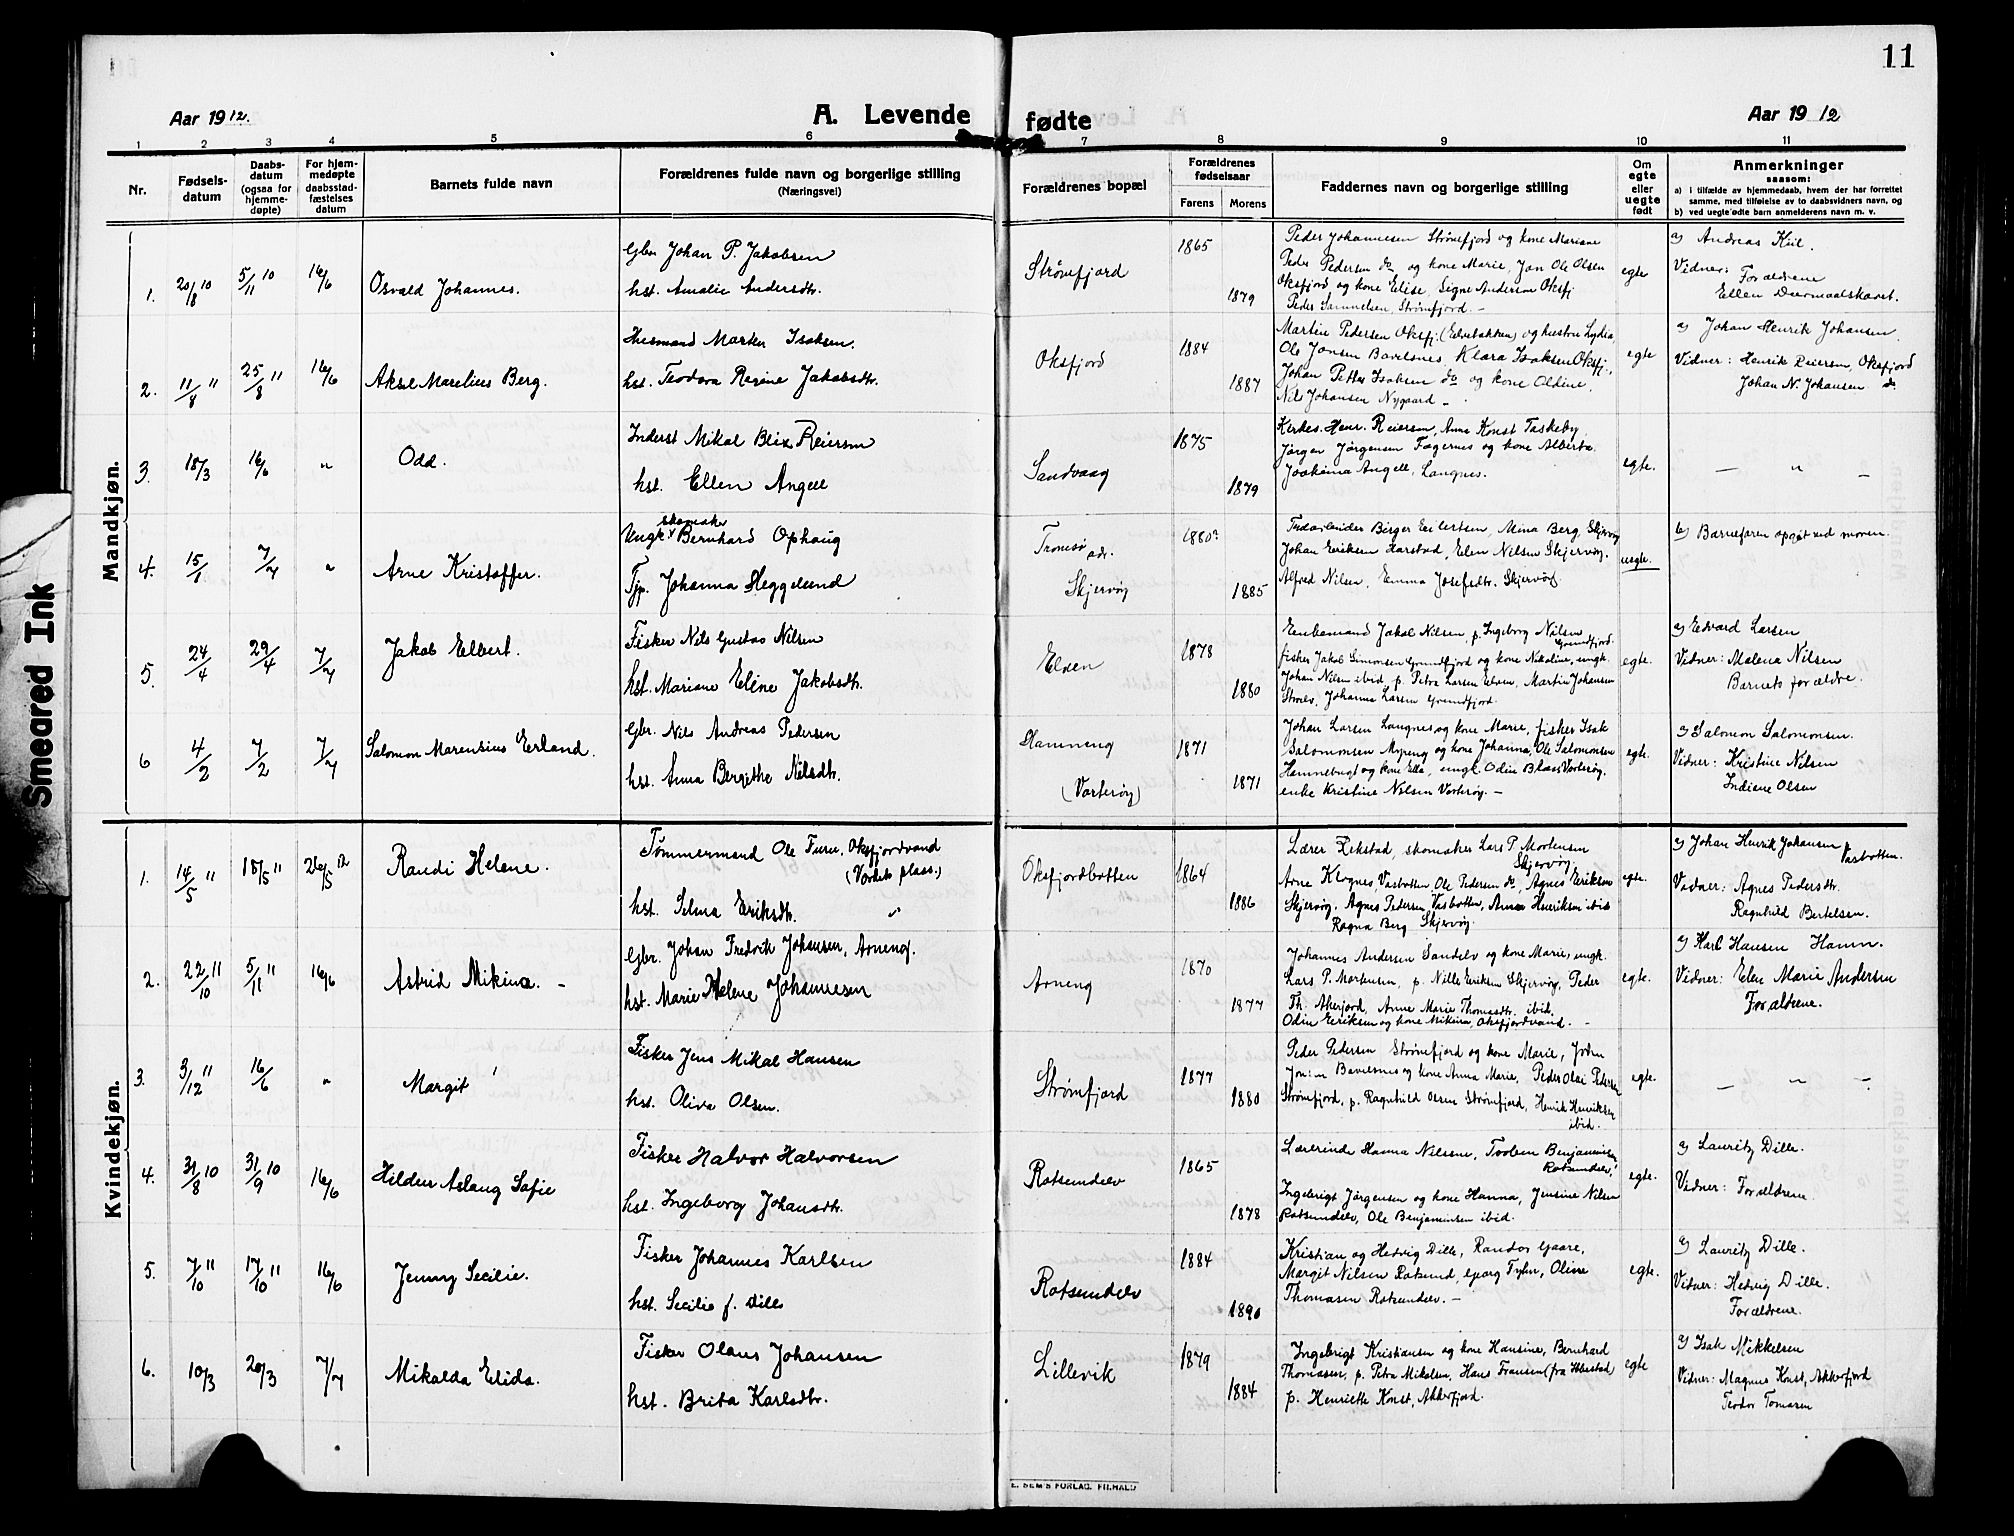 11
Aar 1912.
A. Levende
fødte
Aar 1912
1 2 3 4 5 6 7 8 9 10 11
Nr.
Fødsels-
datum
Daabs-
datum
(ogsaa for
hjemme-
døpte)
For hjem-
medøpte
daabsstad-
fæstelses
datum
Barnets fulde navn
Forældrenes fulde navn og borgerlige stilling
(Næringsvei)
Forældrenes bopæl
Forældrenes
fødselsaar
Farens
Morens
Faddernes navn og borgerlige stilling
Om
egte
eller
uegte
født
Anmerkninger
saasom:
a) i tilfælde av hjemmedaab, hvem der har forrettet
samme, med tilføielse av to daabsvidners navn, og
b) ved uegte fødte barn anmelderens navn m. v.
Mandkjøn.
1. 20/8 10 5/11 10 16/6 Osvald Johannes.
Gbr Johan P. Jakobsen
hst. Amalie Andersdtr.
Strømfjord
1865
1879
Peder Johannesen Strømfjord og kone Mariane
Peder Pedersen do og kone Marie, Jon Ole Olsen
Oksfjord og kone Elise, Signe Andersen Oksfj
Peder Samuelsen, Strømfjord. —
egte
a) Andreas Kiil.
Vidner: Forældrene
Ellen
2. 11/8 " 25/8 " 16/6 Aksel Marelius Berg.
Husmand Markus Isaksen.
hst. Teodora Regine Jakobsdtr.
Oksfjord
1884
1887
Martin Pedersen Oksfj. (Elvebakken) og hustru Lydia,
Ole Jonsen Bavelsnes, Klara Isaksen Oksfj.,
Johan Petter Isaksen do og kone Oldine,
Nils Johansen Nygaard —
egte
a) Johan Henrik Johansen.
Vidner: Henrik Reiersen, Oksfjord
Johan N. Johansen do
3. 18/3 16/6 " Odd.
Inderst Mikal Blix Reiersen
hst. Ellen Angell
Sandvaag
1875
1879
Kirkes. Henr. Reiersen, Anne Konst Taskeby,
Jørgen Jørgensen Fagernes og kone Alberta.
Joakima Angell, Langnes.
egte.
— " —
4. 15/1 7/4 " Arne Kristoffer.
skomaker
Ungk. Bernhard Ophaug
Tjp. Johanna Heggelund
Tromsø
adr.
Skjervøy
1880?
1885
Birger Eilertsen, Mina Berg Skjervøy
Johan Eriksen Harstad, Elen Nilsen Skjervøy.
Alfred Nilsen, Emma Josefsdtr. Skjervøy
uegte.
b) Barnefaren opgit ved moren.
5. 24/4 29/4 7/4 Jakob Elbert.
Fisker Nils Gustav Nilsen
hst. Mariane Eline Jakobsdtr.
Elven
1878
1880
Enkemand Jakob Nilsen, p. Ingeborg Nilsen
Grundfjord.
fisker Jakob Simonsen Grundfjord og kone Nikoline, ungk.
Johan Nilsen ibid, p. Petra Larsen Elven, Martin Johansen
Storelv, Johanna Larsen Grundfjord.
egte.
a) Edvard Larsen
Vidner: Malena Nilsen
Barnets forældre.
6 4/2 7/2 7/4 Salomon Marensius Erland.
Gbr. Nils Andreas Pedersen
hst. Anna Bergithe Nilsdtr.
Hamneng
(Vorterøy)
1871
1871
Johan Larsen Langnes og kone Marie, fisker Isak
Salomonsen Myreng og kone Johanna, Ole Salomonsen
Hamnebugt og kone Ella, ungk. Odin Blaas Vorterøy,
enke Kristine Nilsen Vorterøy. —
egte.
a) Salomon Salomonsen.
Vidner: Kristine Nilsen
Indiane Olsen
Kvindekjøn.
1. 14/5 " 18/5 " 26/5 12 Randi Helene.
Tømmermand Ole Furu, Oksfjordvand
(Vordets plass.)
hst. Selma Eriksdtr. "
Oksfjordbotten
1864
1886
Lærer Rekstad, skomaker Lars P. Mortensen
Skjervøy,
Arne Klognes, Vasbotten, Ole Pedersen do, Agnes Eriksen
Skjervøy, Agnes Pedersen Vasbotten, Anna Henriksen ibid
Ragna Berg Skjervøy.
egte.
a) Johan Henrik Johansen
Vasbotten.
Vidner: Agnes Pedersdtr.
Ragnhild Bertelsen.
2. 22/10 " 5/11 " 16/6 Astrid Mikina. —
Gbr. Johan Fredrik Johansen, Arneng.
hst. Marie Helene Johannesen
Arneng
1870
1877
Johannes Andersen Sandelv og kone Marie, ungk.
Lars P. Mortensen, p. Nille Eriksen Skjervøy, Peder
Th. Akerfjord, Anne Marie Thomasdtr. ibid,
Odin Eriksen og kone Mikina, Oksfjordvand. —
egte.
a) Karl Hansen Hamn.
Vidner: Elen Marie Andersen
Forældrene.
3. 3/12 " 16/6 " Margit
Fisker Jens Mikal Hansen
hst. Oliva Olsen.
Strømfjord
1877
1880
Peder Pedersen Strømfjord og kone Marie, John
Jonsen Bavelsnes og kone Anna Marie, Peder Olai Pedersen
Strømfjord, p. Ragnhild Olsen Strømfjord, Henrik Henriksen
ibid.
egte.
— " —
4. 31/8 10 31/9 10 16/6 Hildur Aslaug Sofie
Fisker Halvor Halvorsen
hst. Ingeborg Johansdtr.
Rotsundelv
1865
1878
Lærerinde Hanna Nilssen, Torben Benjaminsen
Rotsundelv,
Ingebrigt Jørgensen og kone Hanna, Jensine Nilsen
Rotsundelv, Ole Benjaminsen ibid.
egte.
a) Lauritz Dille.
Vidner: Forældrene
5. 7/10 " 17/10 " 16/6 Jenny Secilie.
Fisker Johannes Karlsen
hst. Secilie f. Dille
Rotsundelv
1884
1890
Kristian og Hedvig Dille, Randor Gaare,
Margit Nilsen Rotsund, Georg Tyhr, Oline
Thomasen Rotsundelv. —
egte.
a) Lauritz Dille.
Vidner: Hedvig Dille.
Forældrene.
6. 10/3 20/3 7/4 Mikalda Elida.
Fisker Olaus Johansen
hst. Brita Karlsdtr.
Lillevik
1879
1884
Ingebrigt Kristiansen og kone Hansine, Bernhard
Thomassen, p. Petra Mikalsen, Hans Fransen (fra Ibbestad)
p. Henriette Konst, Akkerfjord.
egte
a) Isak Mikkelsen
Vidner: Magnus Konst, Akkerfjord
Teodor Tomasen
E. SEM'S FORLAG. FR.HALD
Smeared Ink